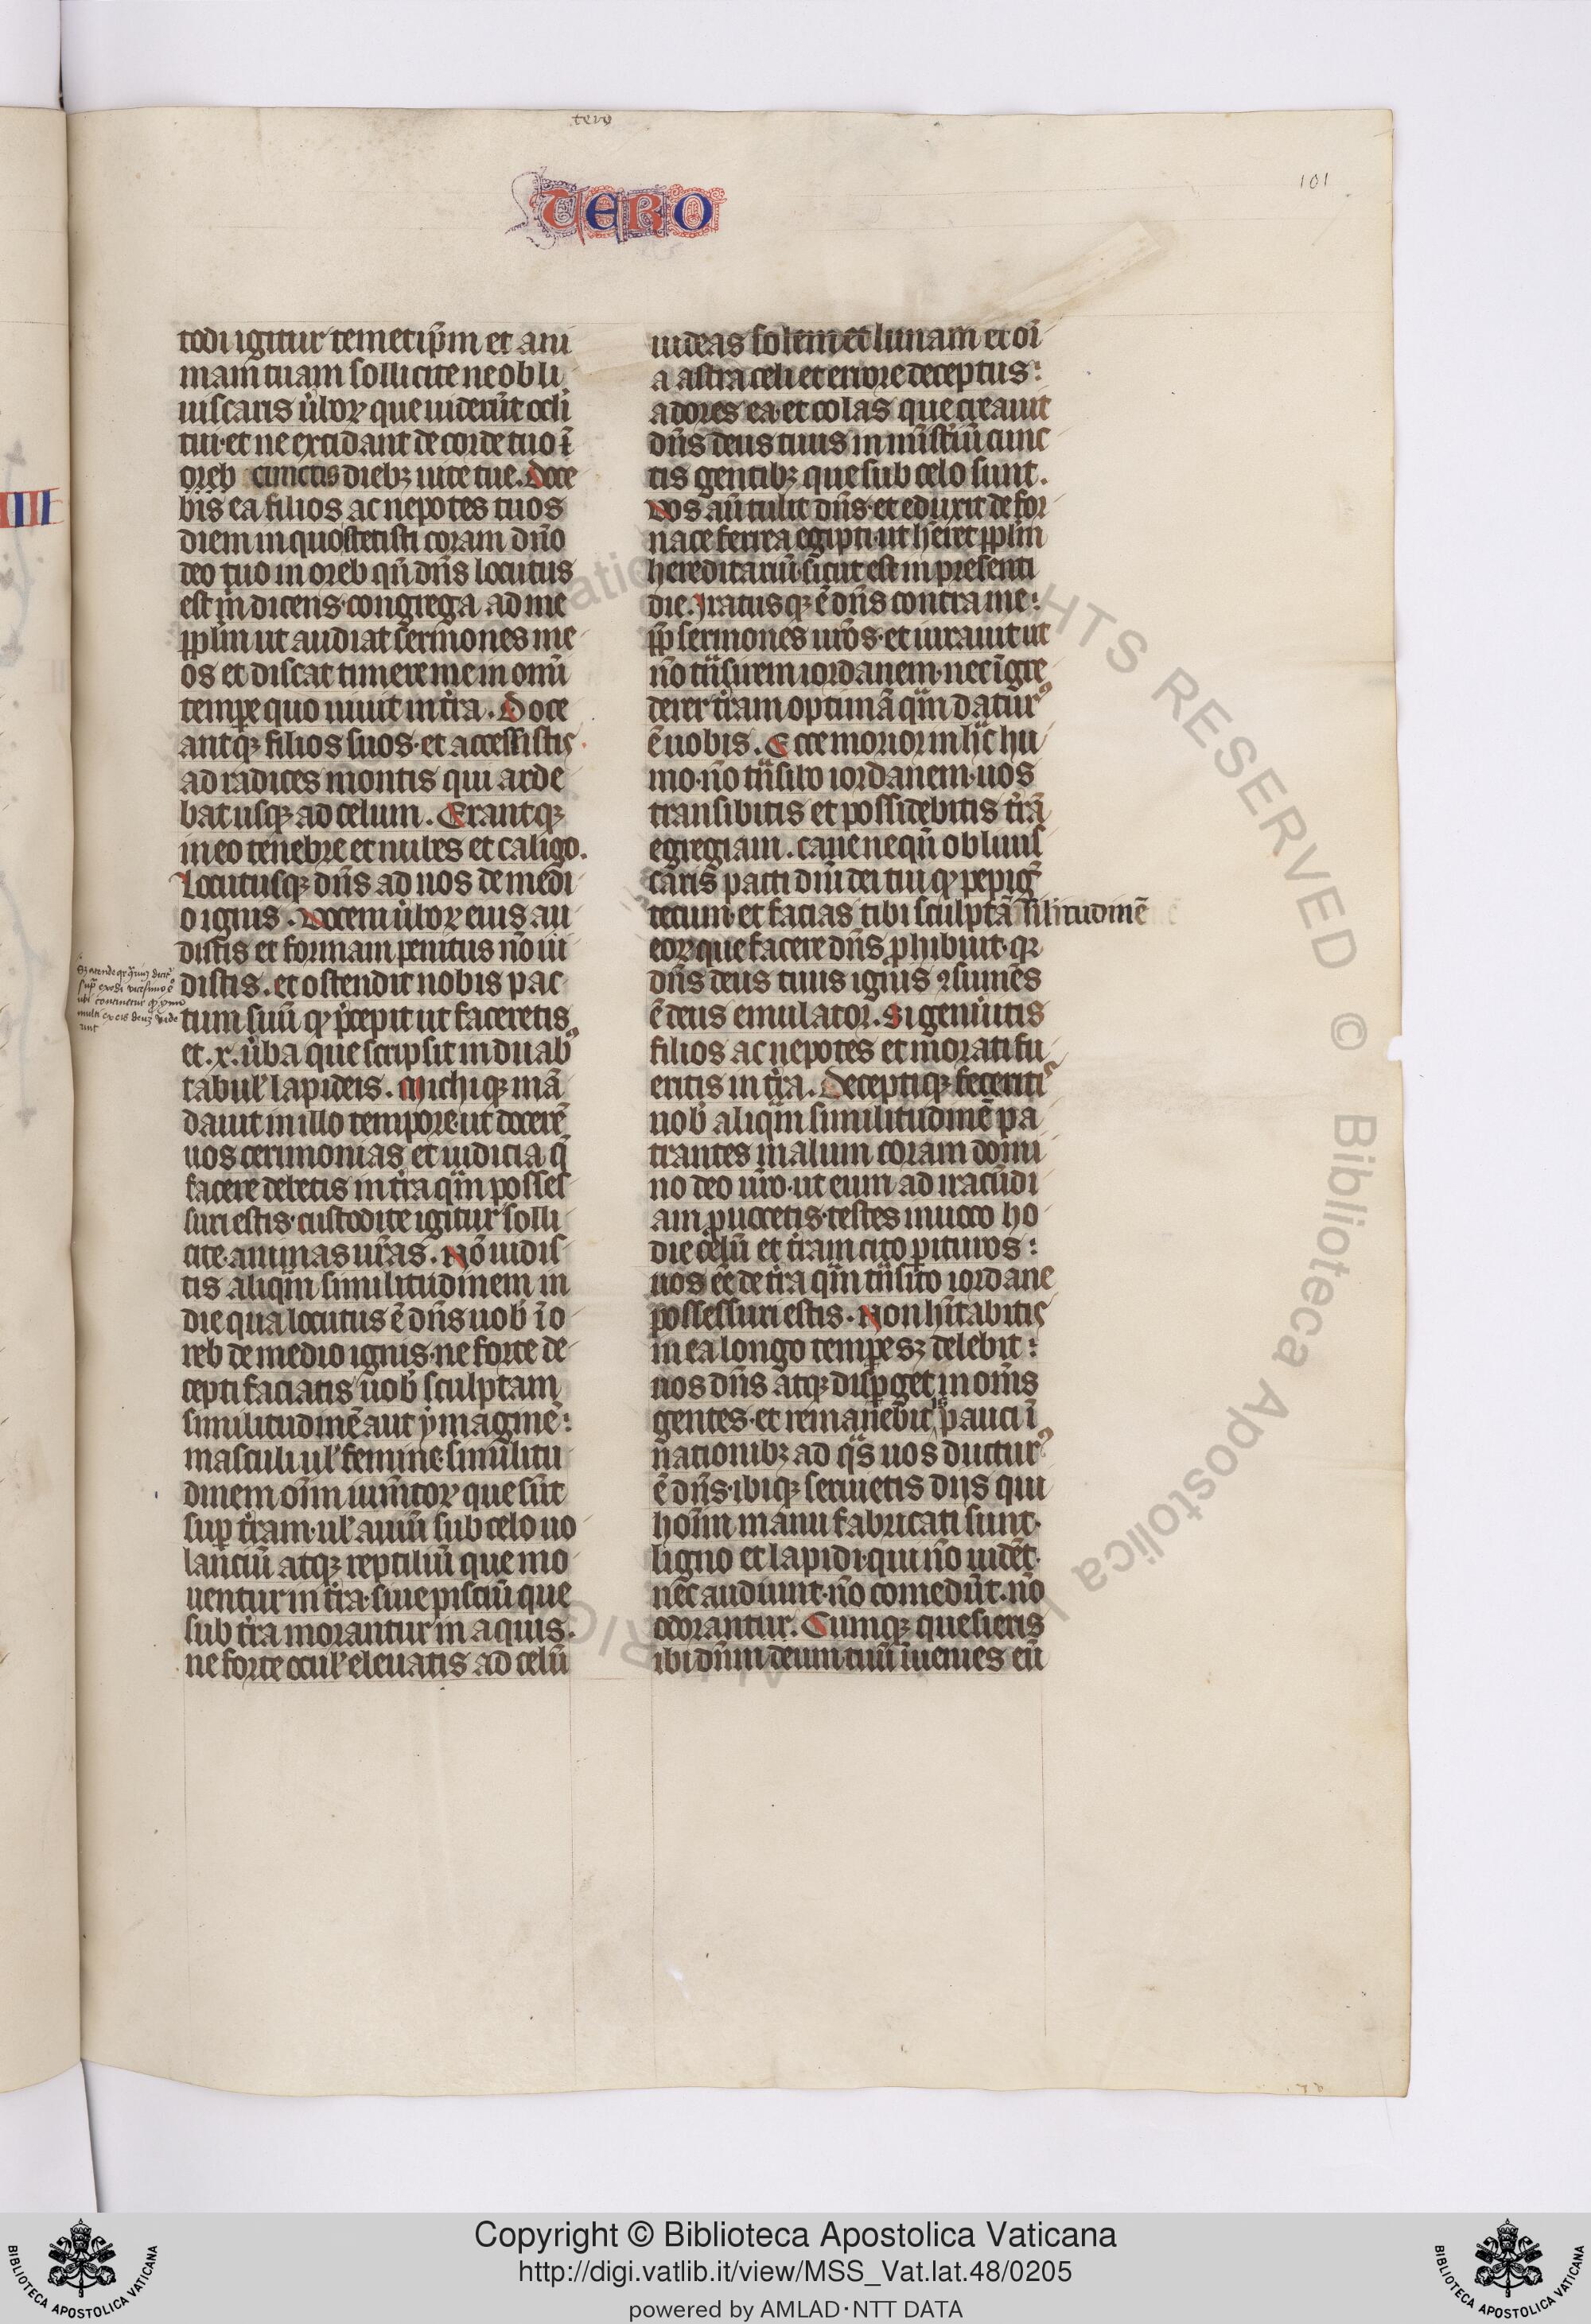 tero
TERO
101
todi igitur temetip̄m et ani
mam tuam sollicite ne obli
uiscaris u̇boꝝ que uider̄ut ocli
tui·et ne excidant de corde tuo ī
oreb cunctis diebꝫ uite tue. Doce
bis ea filios ac nepotes tuos
diem in quo stetisti coram dn̄o
deo tuo in oreb qn̄ dn̄s locutus
est m̄ dicens·congrega ad me
ꝓplm ut audiat sermones me
os et discat timere me in omī
temꝑe quo uiuit in tr̄a. Doce
antqꝫ filios suos·et accessistis
ad radices montis qui arde
bat usqꝫ ad celum. Erantqꝫ
in eo tenebre et nubes et caligo.
Locutusqꝫ dn̄s ad uos de medi
o ignis. Vocem u̇boꝝ eius au
distis et formam penitus nō ui
distis. et ostendit uobis pac
tum suū qꝫ p̄cepit ut faceretis
et .x. u̇ba que scripsit in duabꝰ
tabul̓ lapideis. Michiqꝫ mā
dauit in illo tempore·ut docerē
uos cerimonias et iudicia q̄
facere debetis in tr̄a qm̄ posses
suri estis·custodite igitur solli
cite·animas ur̄as. Nō uidis
tis aliqm̄ similitudinem in
die qua locutus ē dn̄s uob̓ ī o
reb de medio ignis·ne forte de
cepti faciatis uob̓ sculptam
similitudinē aut ymaginē:
masculi ul̓ femine·similitu
dinem oīm iumt̄oꝝ que sūt
suꝑ tr̄am·ul̓ auiū sub celo uo
lanciū atqꝫ reptiliū que mo
uentur in tr̄a·siue pisciū que
sub tr̄a morantur in aquis.
ne forte ocul̓ eleuatis ad celū
uideas solem et lunam et oī
a astra celi et errore deceptus:
adores ea·et colas que creauit
dn̄s deus tuus in mīst̄iū cunc
tis gentibꝫ que sub celo sunt.
Vos aū tulit dn̄s·et eduxit de for
nace ferrea egipti·ut hēret ꝓplm
hereditariū·sicut est in presenti
die. Iratusqꝫ ē dn̄s contra me:
ꝓp̄ sermones ur̄os·et iurauit ut
nō tn̄sirem iordanem·nec īgre
derer tr̄am optimā qm̄ daturꝰ
ē uobis. Ecce morior in hᷓc hu
mo·nō tn̄sibo iordanem·uos
transibitis et possidebitis tr̄ā
egregiam. caue nequn̄ obliuis
caris pacti dn̄i dei tui qꝫ pepigᷓ
tecum·et facias tibi sculptā silitudinē
eoꝝ que facere dn̄s ꝓhibuit·qꝫ
dn̄s deus tuus ignis ꝯsumēs
ē deus emulator. Si genu̇itis
filios ac nepotes et morati fu
eritis in tr̄a. Deceptiqꝫ feceritis
uob̓ aliqm̄ similitudinē pa
trantes malum coram domi
no deo ur̄o·ut eum ad iracūdi
am ꝓuocetis·testes inuoco ho
die celū et tr̄am cito ꝑituros:
uos eē de tr̄a qm̄ tn̄sito iordane
possessuri estis. Non hītabitis
in ea longo temꝑe sꝫ delebit:
uos dn̄s atqꝫ disꝑget in omīs
gentes·et remanēbit̓ pauci ī
nationibꝫ ad qᷓs uos ducturꝰ
ē dn̄s·ibiqꝫ seruietis diis qui
hoīm manu fabricati sunt·
ligno et lapidi·qui nō uidēt·
nec audiunt·nō comedūt·nō
odorantur. Cumqꝫ quesieris
ibi dn̄m deum tuū īuenies eū
RIGHTS RESERVED © Biblioteca Apostolica
Copyright © Biblioteca Apostolica Vaticana
http://digi.vatlib.it/view/MSS_Vat.lat.48/0205
powered by AMLAD·NTT DATA
BIBLIOTECA APOSTOLICA VATICANA
BIBLIOTECA APOSTOLICA VATICANA